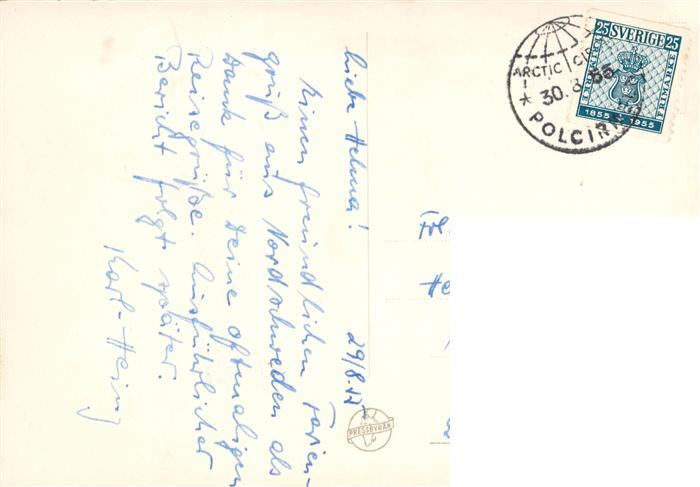 Liebe Helma! 29/8.55
Einen freundlichen Ferien-
gruß aus Nordschweden als
Dank für Deine oftmaligen
Reisegrüße. Ausführlicher
Bericht folgt später.
Karl-Heinz
ARCTIC
30.8.55
POLCIR
25 SVERIGE 25
FRIMÄRKE
FRIMÄRKE
1855 1955
He
PRESSBYRÅN